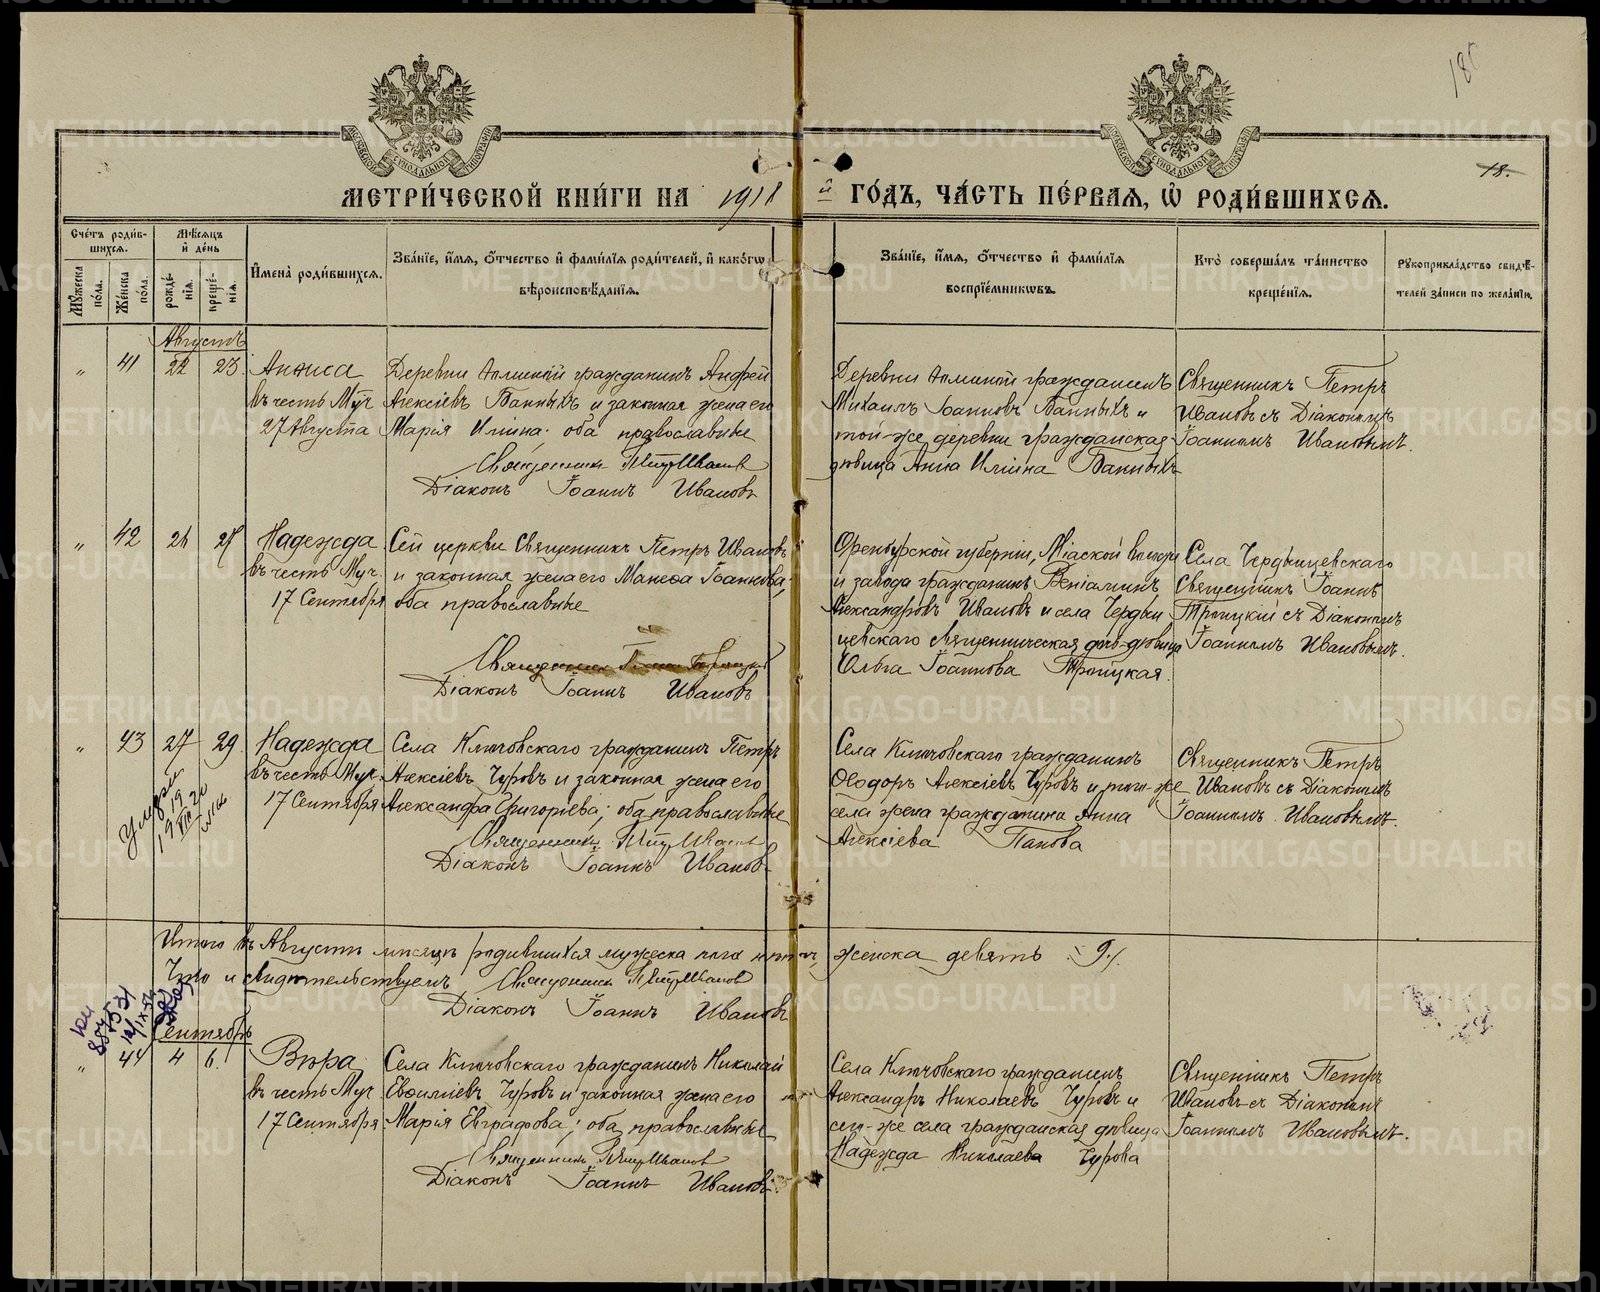 185
18.
МОСКОВСКОЙ СИНОДАЛЬНОЙ ТИПОГРАФІИ
МОСКОВСКОЙ СИНОДАЛЬНОЙ ТИПОГРАФІИ
МЕТРИ́ЧЕСКОЙ КНИ́ГИ НА 1918 й ГО́ДЪ, ЧА́СТЬ ПЕ́РВАЯ, Ѿ РОДИ́ВШИХСЯ.
Сче́тъ роди́вшихся.
Мѣ́сяцъ и де́нь
Мꙋ́жеска по́ла.
Же́нска по́ла.
рожде́нія.
креще́нія.
Имена̀ роди́вшихся.
Зва́ніе, и́мя, ѻ́тчество и фами́лія роди́телей, и како́гѡ
вѣроисповѣ́данія.
Зва́ніе, и́мя, ѻ́тчество и фами́лія
воспріе́мниковъ.
Кто̀ соверша́лъ та́инство
креще́нія.
Рꙋкоприкла́дство свидѣ́-
телей за́писи по жела́нію.
Августъ
" 41 22 23
Анѳиса
въ честь Муч.
27 Августа
Деревни гражданинъ Андрей
Алексіевъ Банныхъ и законная жена его
Марія Илiина; оба православные
Священникъ Петръ Ивановъ
Діаконъ Іоаннъ Ивановъ
Деревни гражданинъ
Михаилъ Іоанновъ Банныхъ и
той-же деревни гражданская
дѣвица Анна Илiина Банныхъ
Священникъ Петръ
Ивановъ съ Діакономъ
Іоанномъ Ивановымъ.
" 42 26 27
Надежда
въ честь Муч.
17 Сентября
Сей церкви Священникъ Петръ Ивановъ
и законная жена его Манеѳа Іоаннова;
оба православные
Священникъ Іоаннъ Троицкій
Діаконъ Іоаннъ Ивановъ
Оренбургской губерніи, Міаской волости
и завода гражданинъ Веніаминъ
Александровъ Ивановъ и села Черды́н-
цевскаго священническая дочь-дѣвица
Ольга Іоаннова Троицкая.
Села Чердынцевскаго
Священникъ Іоаннъ
Троицкій съ Діакономъ
Іоанномъ Ивановымъ.
" 43 27 29
Надежда
въ честь Муч.
17 Сентября
Села Ключовскаго гражданинъ Петръ
Алексіевъ Чуровъ и законная жена его
Александра Григоріева; оба православные
Священникъ Петръ Ивановъ
Діаконъ Іоаннъ Ивановъ
Села Ключовскаго гражданинъ
Ѳеодоръ Алексіевъ Чуровъ и того-же
села жена гражданина Анна
Алексіева Панова
Священникъ Петръ
Ивановъ съ Діакономъ
Іоанномъ Ивановымъ.
Умерла
Итого въ Августѣ мѣсяцѣ родившихся мужеска пола женска девять 9.
Что и свидѣтельствуемъ Священникъ Петръ Ивановъ
Діаконъ Іоаннъ Ивановъ
Сентябрь
" 44 4 6
Вѣра
въ честь Муч.
17 Сентября
Села Ключовскаго гражданинъ Николай
Евѳиміевъ Чуровъ и законная жена его
Марія Евграфова; оба православные
Священникъ Петръ Ивановъ
Діаконъ Іоаннъ Ивановъ
Села Ключовскаго гражданинъ
Александръ Николаевъ Чуровъ и
сего-же села гражданская дѣвица
Надежда Николаева Чурова
Священникъ Петръ
Ивановъ съ Діакономъ
Іоанномъ Ивановымъ.
METRIKI.GASO-URAL.RU